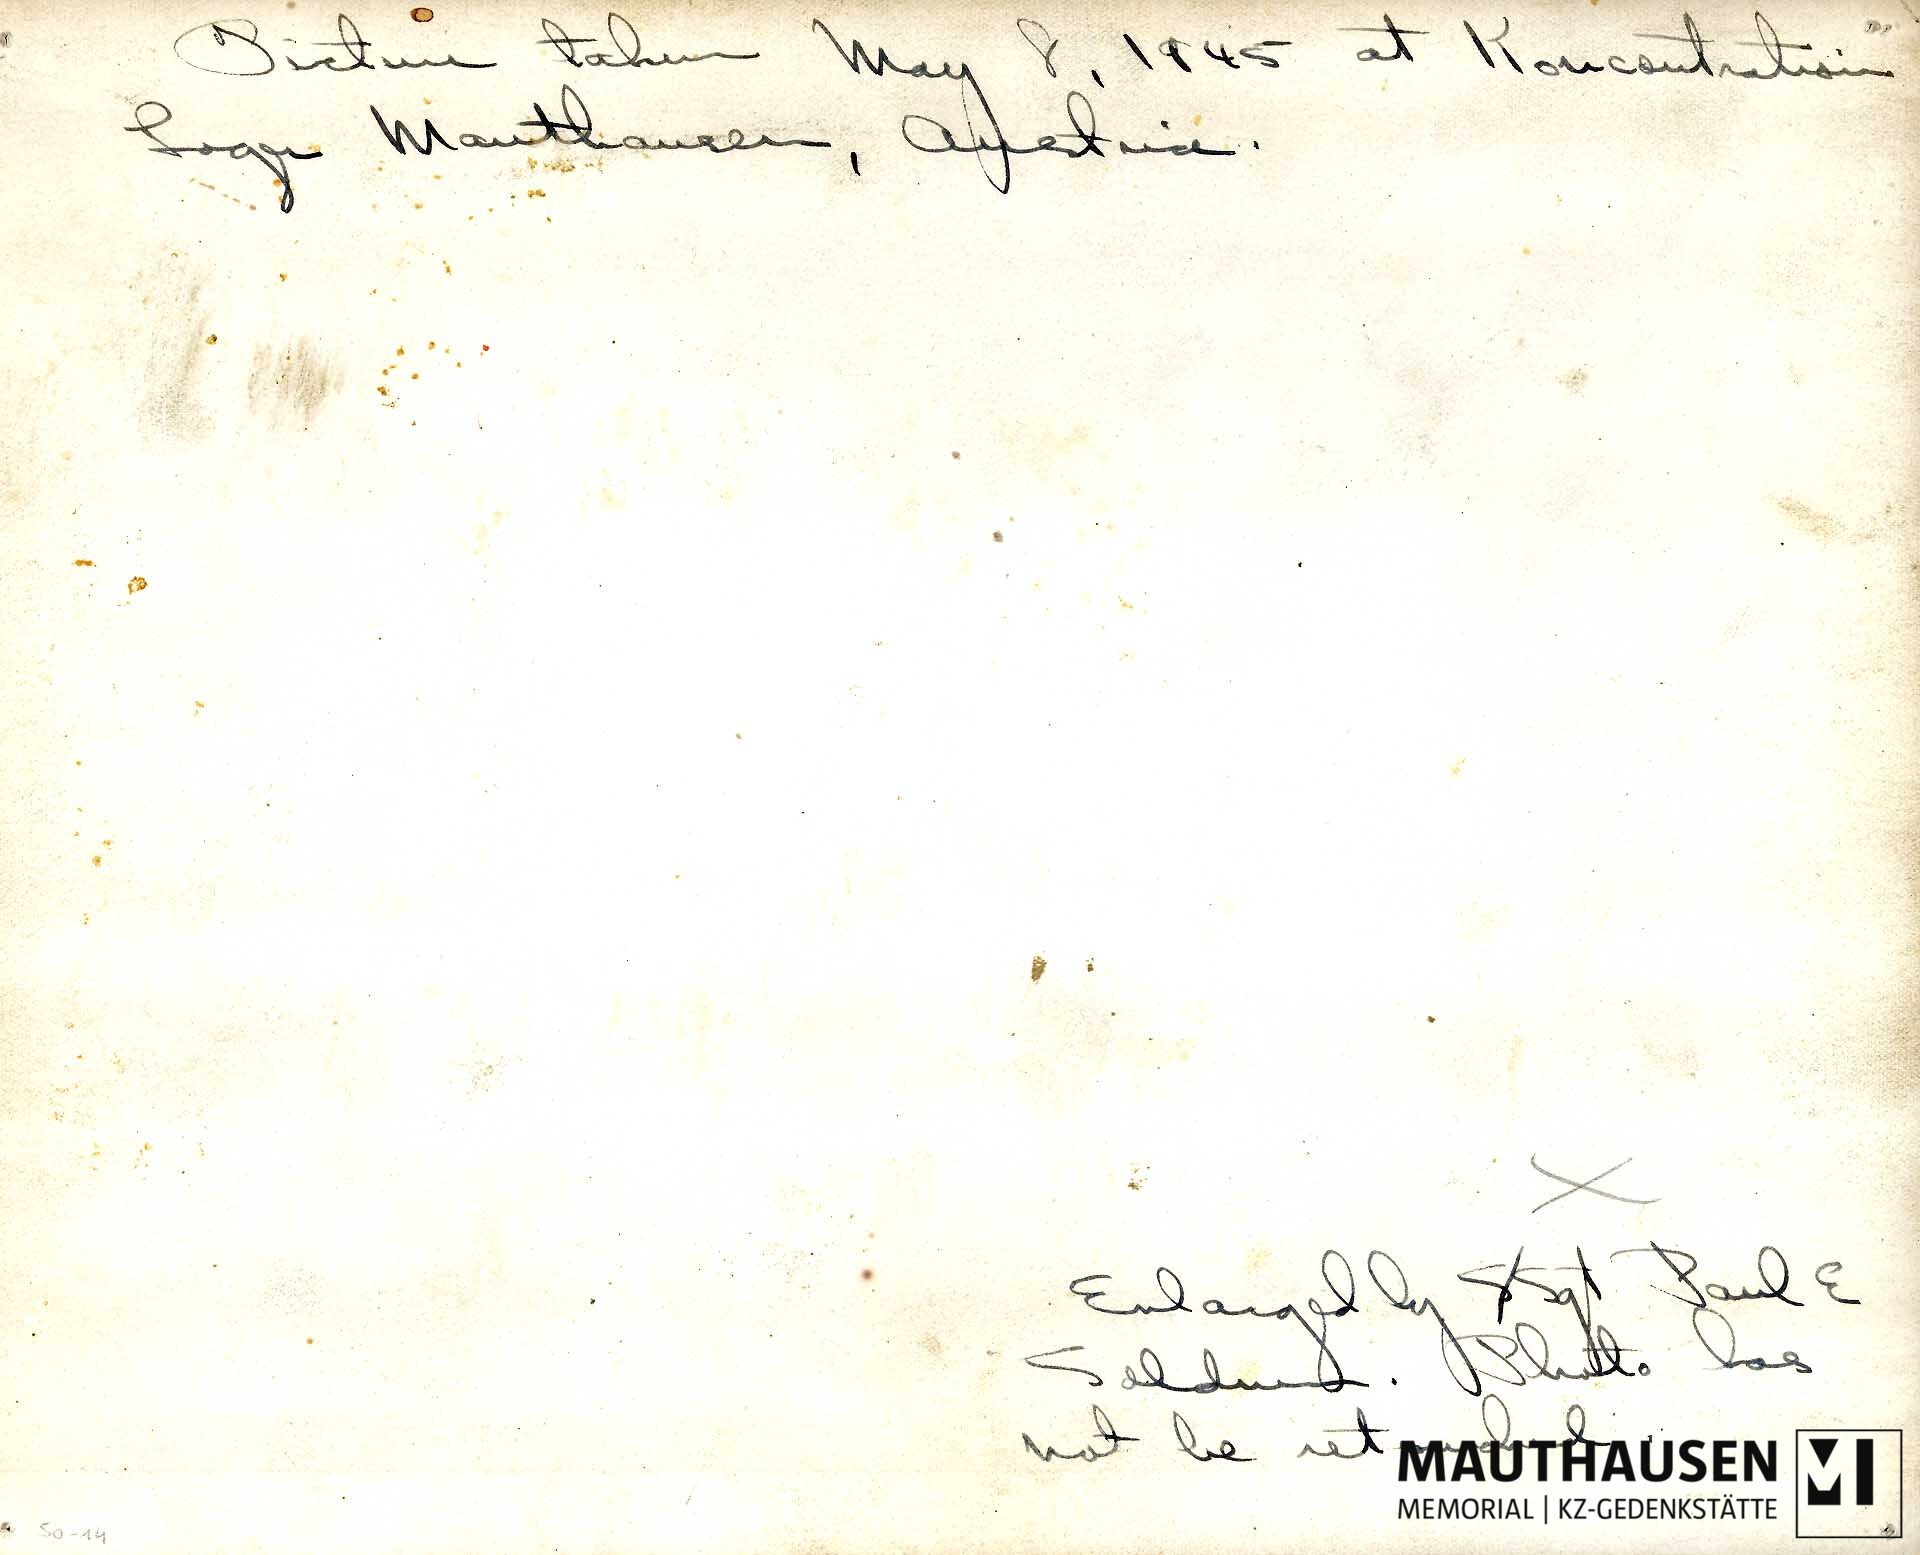 Picture taken May 8, 1945 at Koncentration
Lager Mauthausen, Austria.
Enlarged by SSgt Paul E
Photo has
not be retouched.
MAUTHAUSEN
MEMORIAL | KZ-GEDENKSTÄTTE
50-14